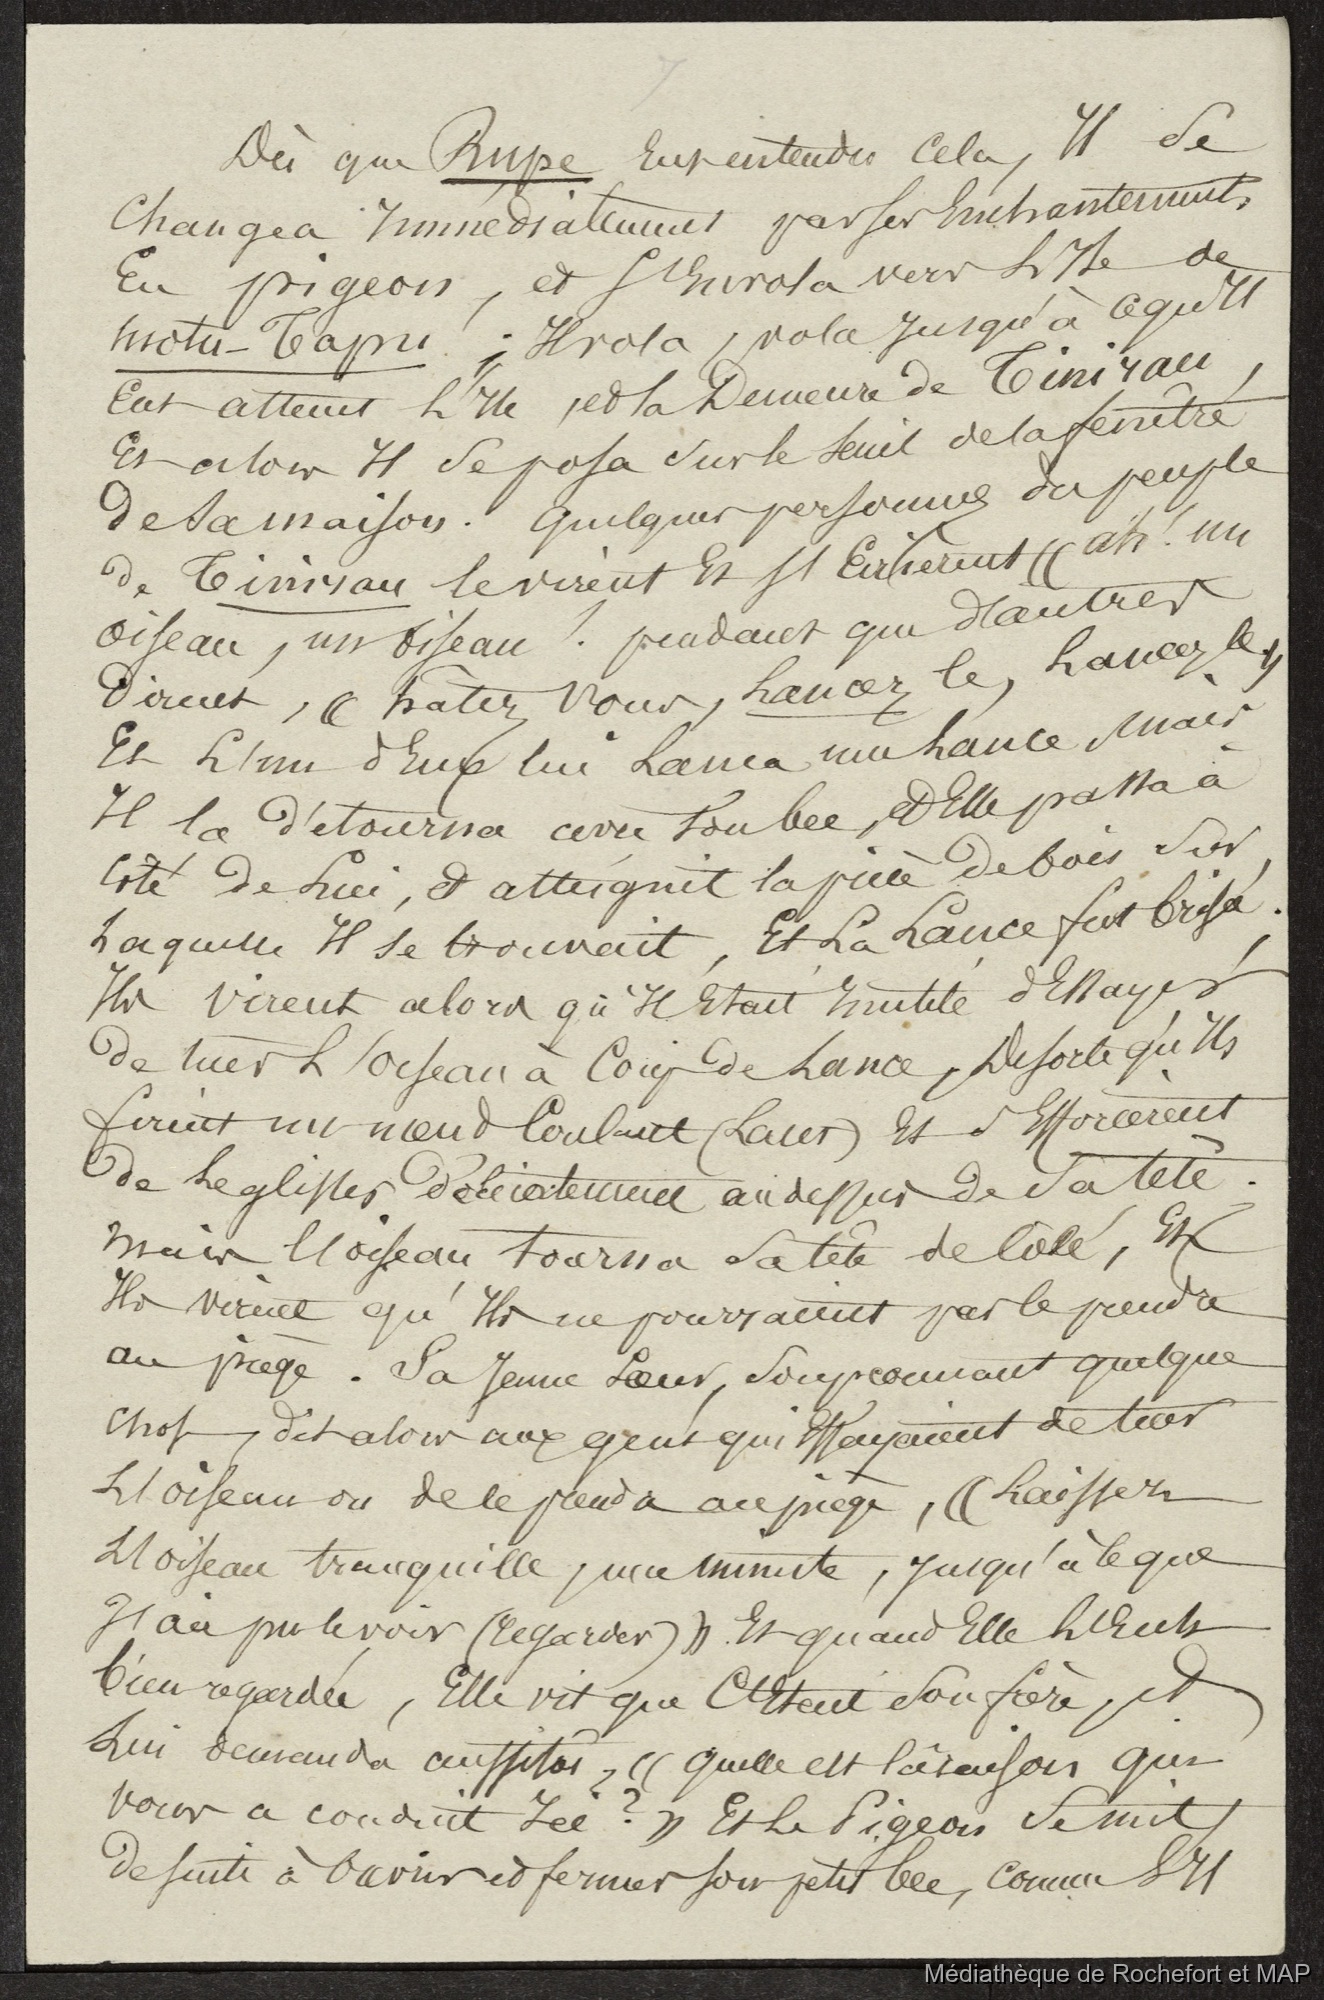 Dès que Rupe eut entendu cela, Il se
changea Immédiatement par ses Enchantements,
En pigeon, et s'Envola vers L'Ile de
motu-Tapu ; Il vola, vola jusqu'à ce qu'Il
Eut atteint L'Ile, et la Demeure de Tinirau,
Et alors Il se posa sur le seuil de la fenêtre
de sa maison. quelques personnes du peuple
de Tinirau le virent Et s'Ecrièrent (( ah! un
oiseau, un oiseau ! pendant que d'autres
dirent, (( hâtez vous, Lancez le, Lancez le ))
Et L'un d'Eux lui Lança une Lance, mais
Il la détourna avec son bec, et Elle passa à
côté de Lui, et atteignit la pièce de bois sur
Laquelle Il se trouvait, Et La Lance fut brisée.
Ils virent alors qu'Il Etait Inutile d'Essayer
de tuer L'oiseau à Coup de Lance, De sorte qu'Ils
firent un nœud Coulant (Lacet) Et s'Efforcèrent
de Le glisser au dessus de Sa tête.
mais l'oiseau tourna Sa tête de Côté, Et
Ils virent qu'Ils ne pourraient pas le prendre
au piège. Sa Jeune Sœur, Soupçonnant quelque
chose, dit alors aux gens qui Essayaient de tuer
L'oiseau ou de le prendre au piège, (( Laissez
L'oiseau tranquille, une minute, jusqu'à ce que
J'ai pu le voir (regarder) )) Et quand Elle L'Eut
bien regardée, Elle vit que C'Etait Son frère, et
Lui demanda aussitôt, (( quelle est la raison qui
vous a conduit Ici ? )) Et Le Pigeon Se mit
de suite à ouvrir et fermer son petit bec, comme S'Il
Médiathèque de Rochefort et MAP